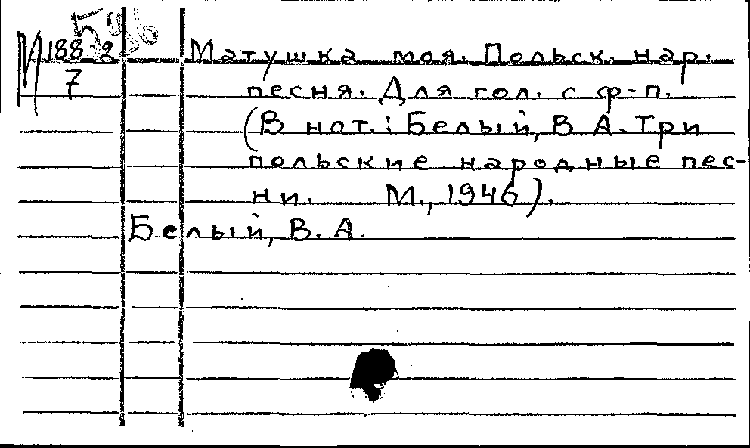 М 188-8 Матушка моя. Польск. нар.
7 песня. Для гол. с ф-п.
(В нот.: Белый, В А. Три
польские народные пес-
ни. М., 1946).
Белый, В. А.